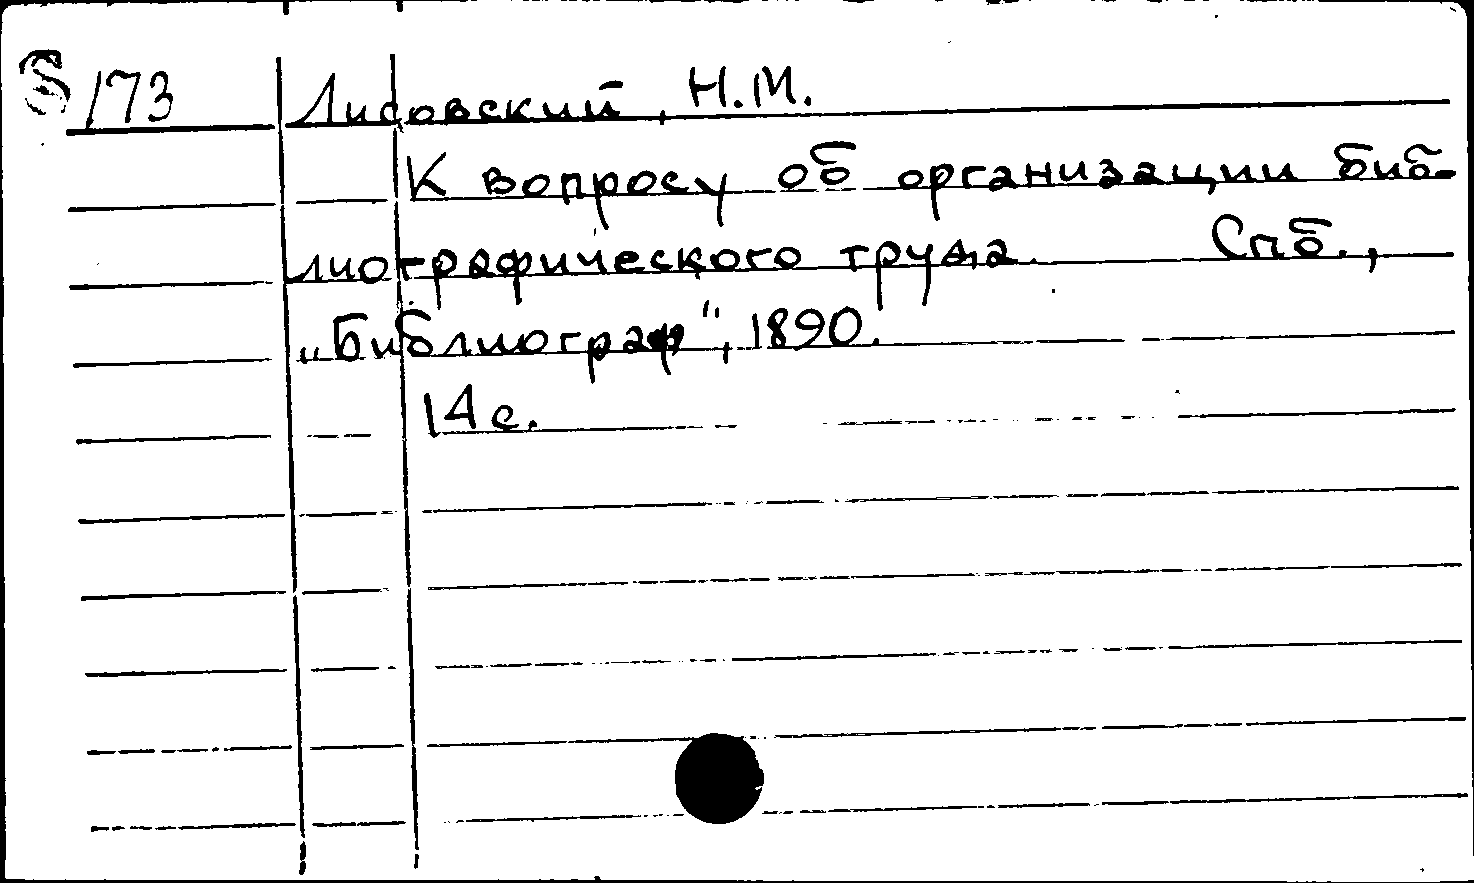 S 173 Лисовский, Н.М.
К вопросу об организации биб-
лиографического труда. Спб.,
„Библиограф", 1890.
14 с.